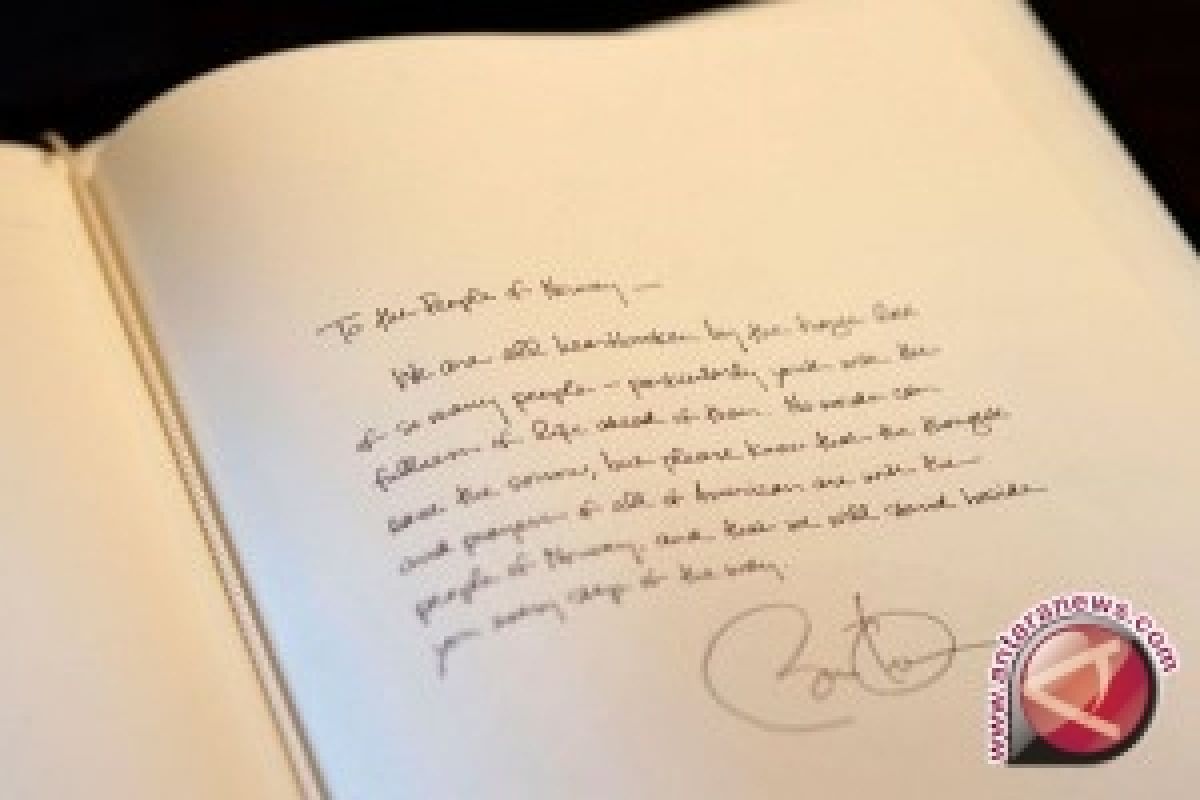 To the People of Norway —
We are all heartbroken by the tragic loss
of so many people – particularly youth with the
fullness of life ahead of them. No words can
the sorrow, but please know that the thoughts
and prayers of all Americans are with the
people of Norway, and that we will stand beside
you every step of the way.
www.antaranews.com